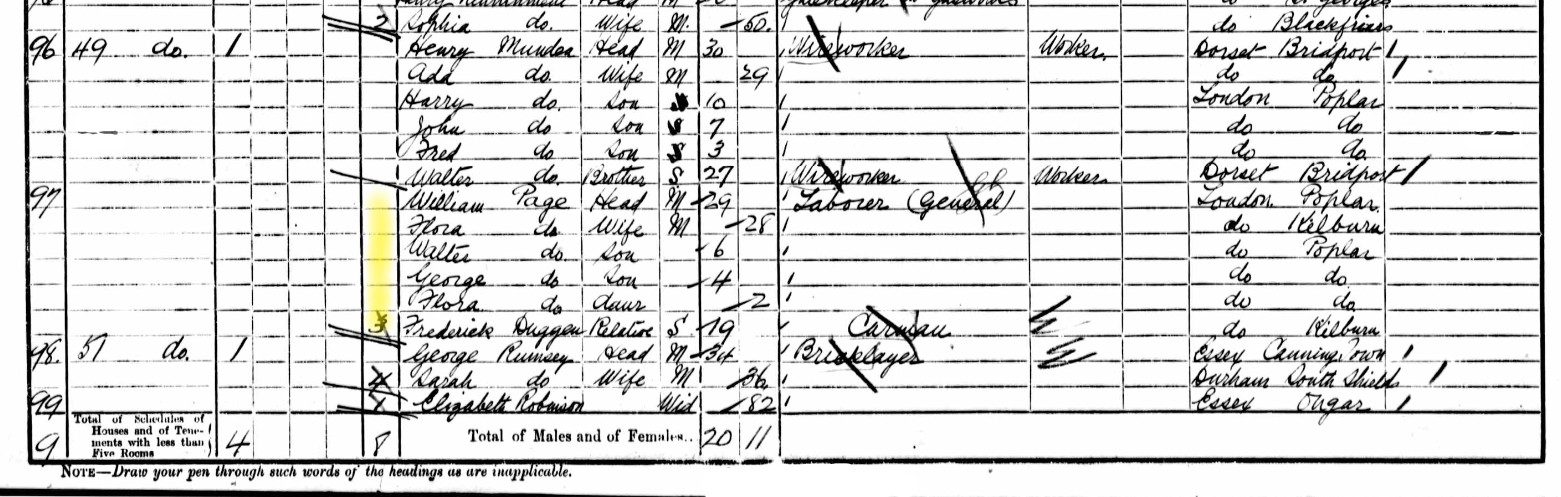 2 Sophia do. Wife M. 50. do Blackfriars
96 49 do. 1 Henry Munden Head M 30 Wireworker Worker. Dorset Bridport
Ada do. Wife M 29 do do
Harry do. Son S 10 London Poplar
John do Son S 7 do do
Fred do Son S 3 do do
Walter do. Brother S 27 Wireworker Worker Dorset Bridport
97 William Page Head M 29 Laborer (General) London Poplar
Flora do Wife M 28 do Kilburn
Walter do. Son 6 do Poplar
George do Son 4 do do
Flora do daur 2 do do
3 Frederick Duggen Relative S 19 Carman do Kilburn
98. 51 do. 1 George Rumsey Head M 34 Bricklayer W Essex Canning Town
4 Sarah do Wife M 36 Durham South Shields
99 1 Elizabeth Robinson Wid 82 Essex Ongar
9 Total of Schedules of Houses and of Tenements with less than Five Rooms 4 8 Total of Males and of Females.. 20 11
NOTE—Draw your pen through such words of the headings as are inapplicable.